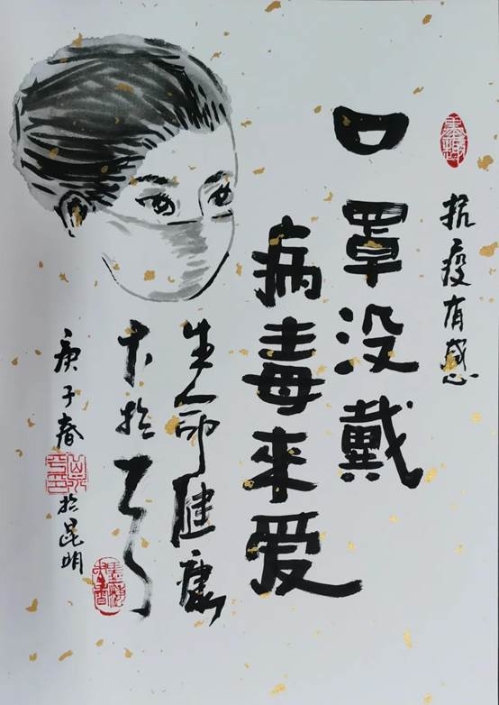 抗疫有感
口罩没戴
病毒來爱
生命健康
大於
庚子春於昆明